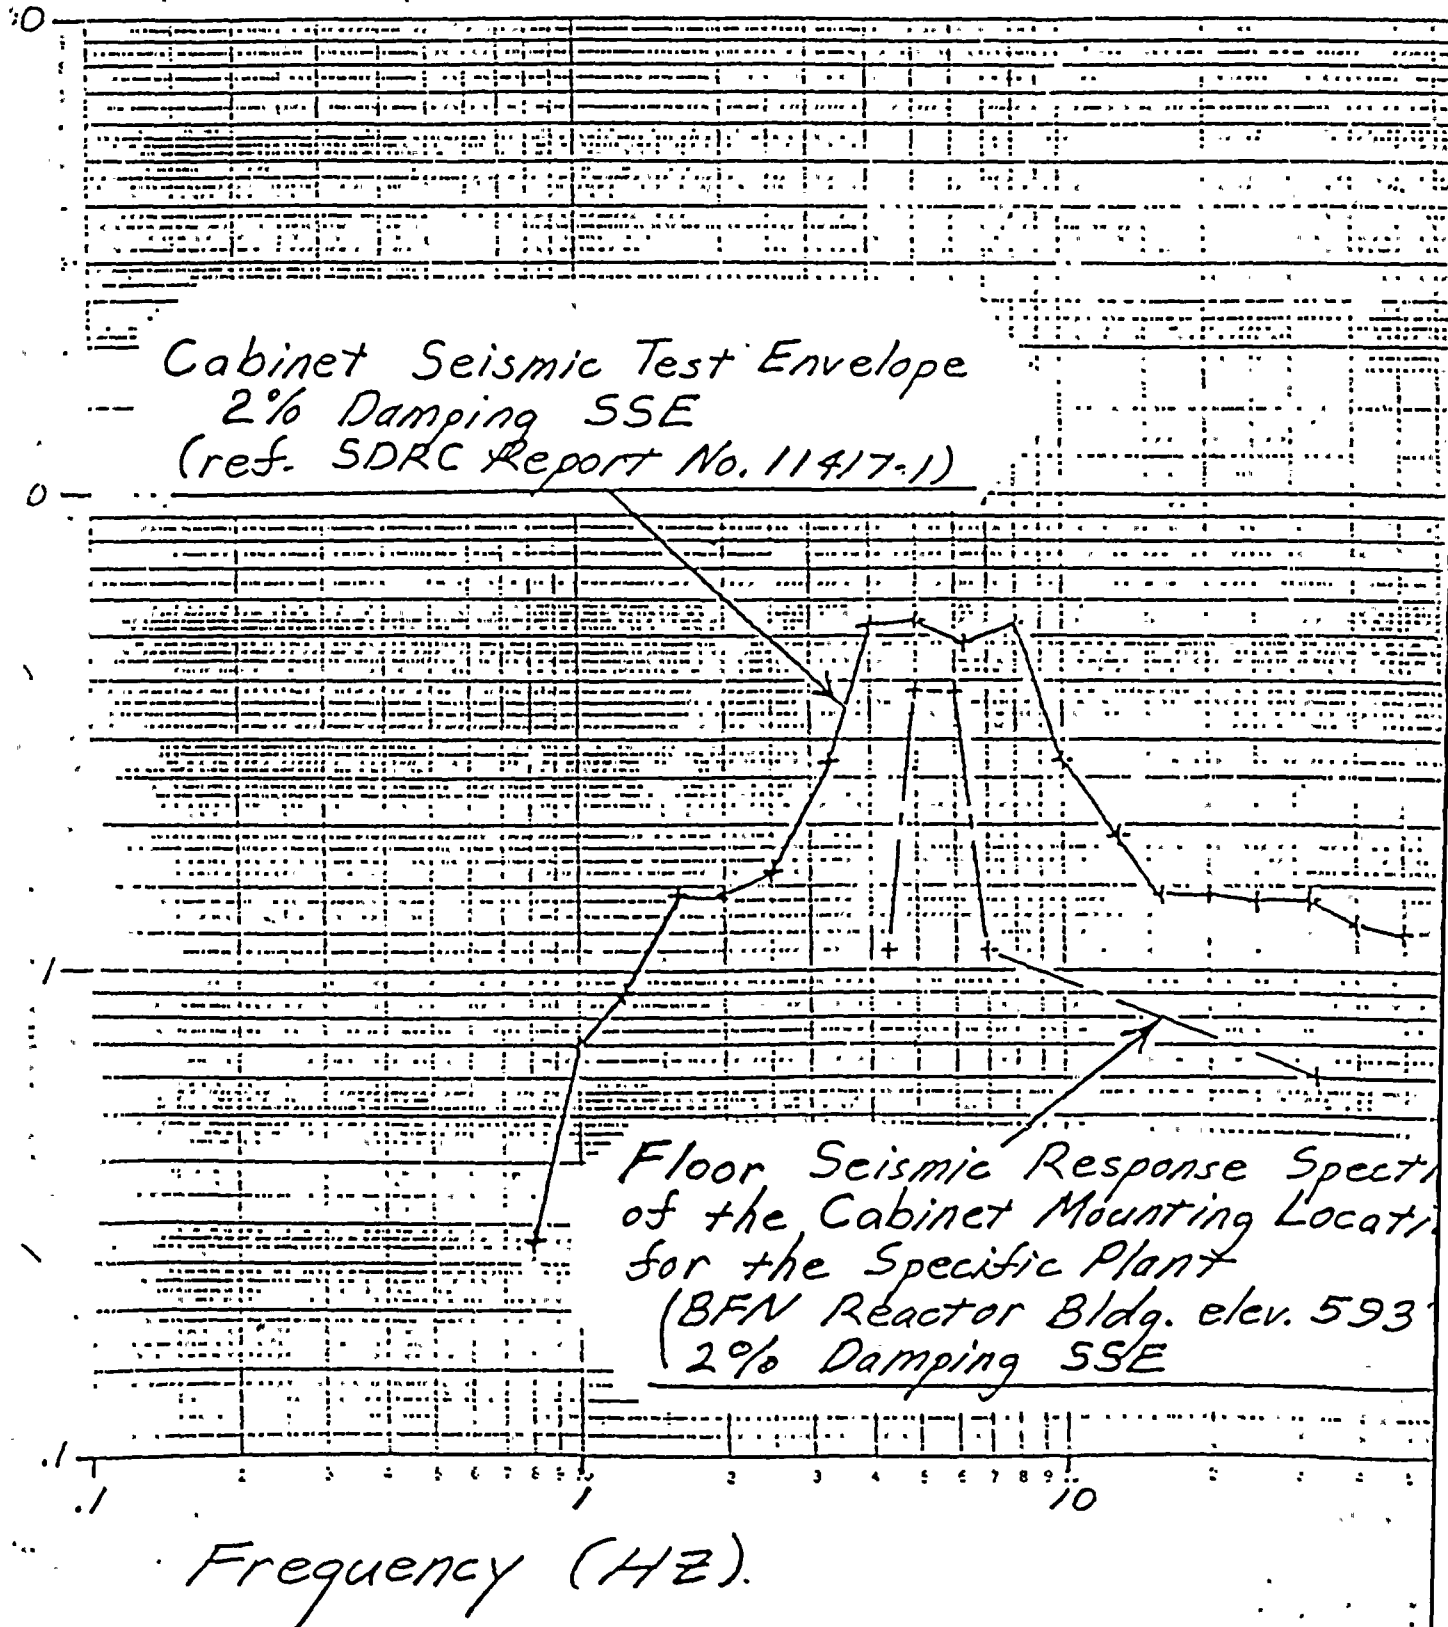 0
Cabinet Seismic Test Envelope
2% Damping SSE
(ref. SDRC Report No. 11417-1)
0
1
Floor Seismic Response Spectr
of the Cabinet Mounting Locati
for the Specific Plant
(BFN Reactor Bldg. elev. 593'
2% Damping SSE
.1
2 3 4 5 6 7 8 9
.1 1 10
Frequency (HZ).